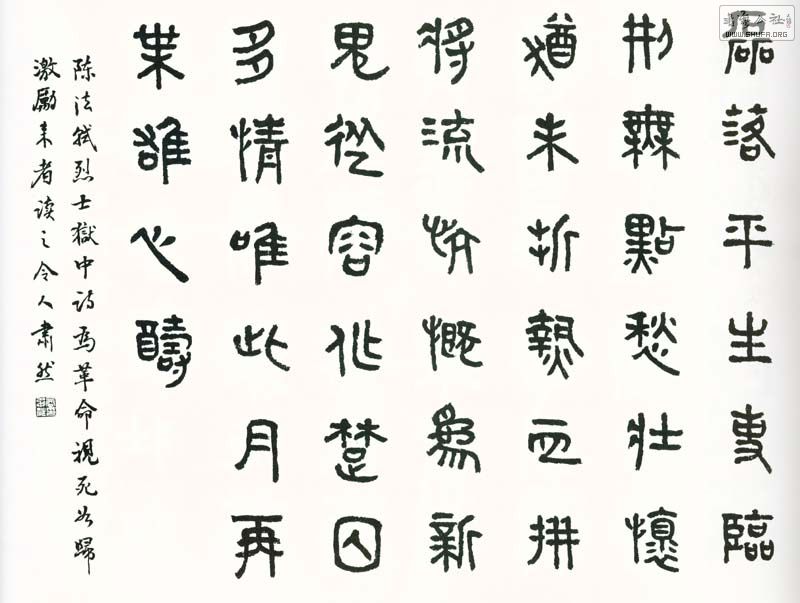 磊落平生事臨
刑無點愁壯懷
猶未折熱血拼
將流忼慨為新
鬼從容作楚囚
多情唯此月再
業雄心醻
陈法轼烈士獄中诗為革命視死如歸
激勵来者读之令人肅然
WWW.SHUFA.ORG